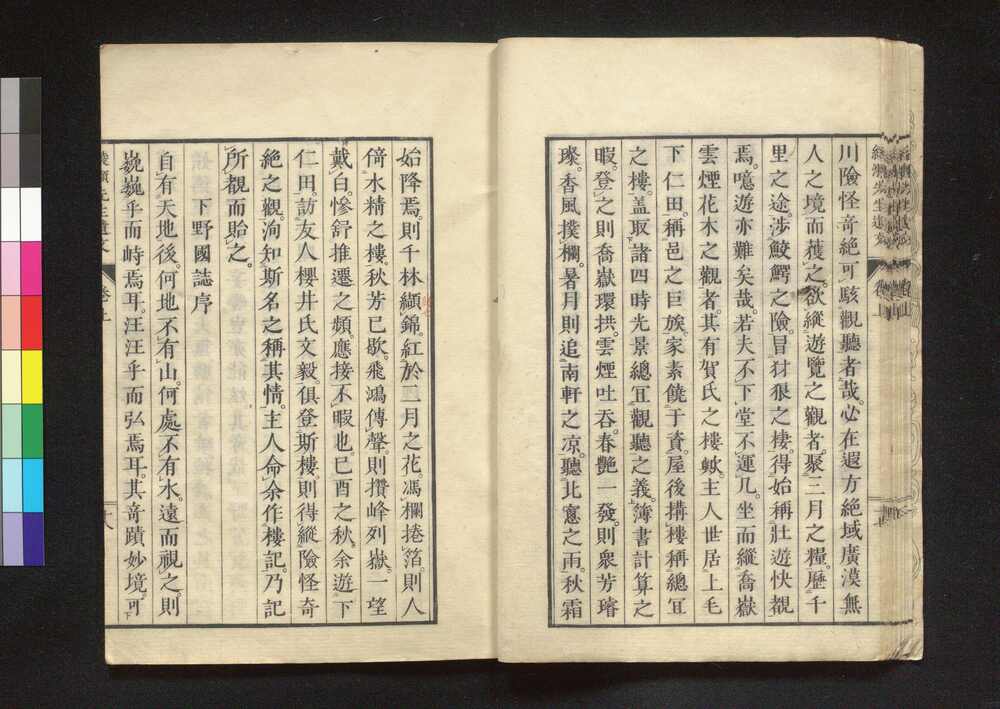 川險怪奇絕可駭觀聽者哉必在遐方絕域廣漠無
人之境而蒦之欲縱遊覽之觀者聚三月之糧歷千
里之途涉鮫鰐之險冒豺狠之棲得始稱壯遊快覩
焉噫遊亦難矣哉若夫不下堂不運几坐而縱喬嶽
雲煙花木之觀者其有賀氏之樓歟主人世居上毛
下仁田稱邑之巨族家素饒于資屋後搆樓稱總宜
之樓蓋取諸四時光景總宜觀聽之義簿書計算之
暇登之則喬嶽環拱雲煙吐吞春艷一發則衆芳璿
璨香風撲欄暑月則追南軒之凉聽北窻之雨秋霜
始降焉則千林纈錦紅於二月之花馮欄捲箔則人
倚水精之樓秋芳已歇飛鴻傳聲則攢峰列嶽一望
戴白慘舒推遷之頻應接不暇也己酉之秋余遊下
仁田訪友人櫻井氏文毅俱登斯樓則得縱險怪奇
絕之觀洵知斯名之稱其情主人命余作樓記乃記
所覩而貽之
下野國誌序
自有天地後何地不有山何處不有水遠而視之則
巍巍乎而峙焉耳汪汪乎而弘焉耳其奇蹟妙境可
先生遺文 卷上